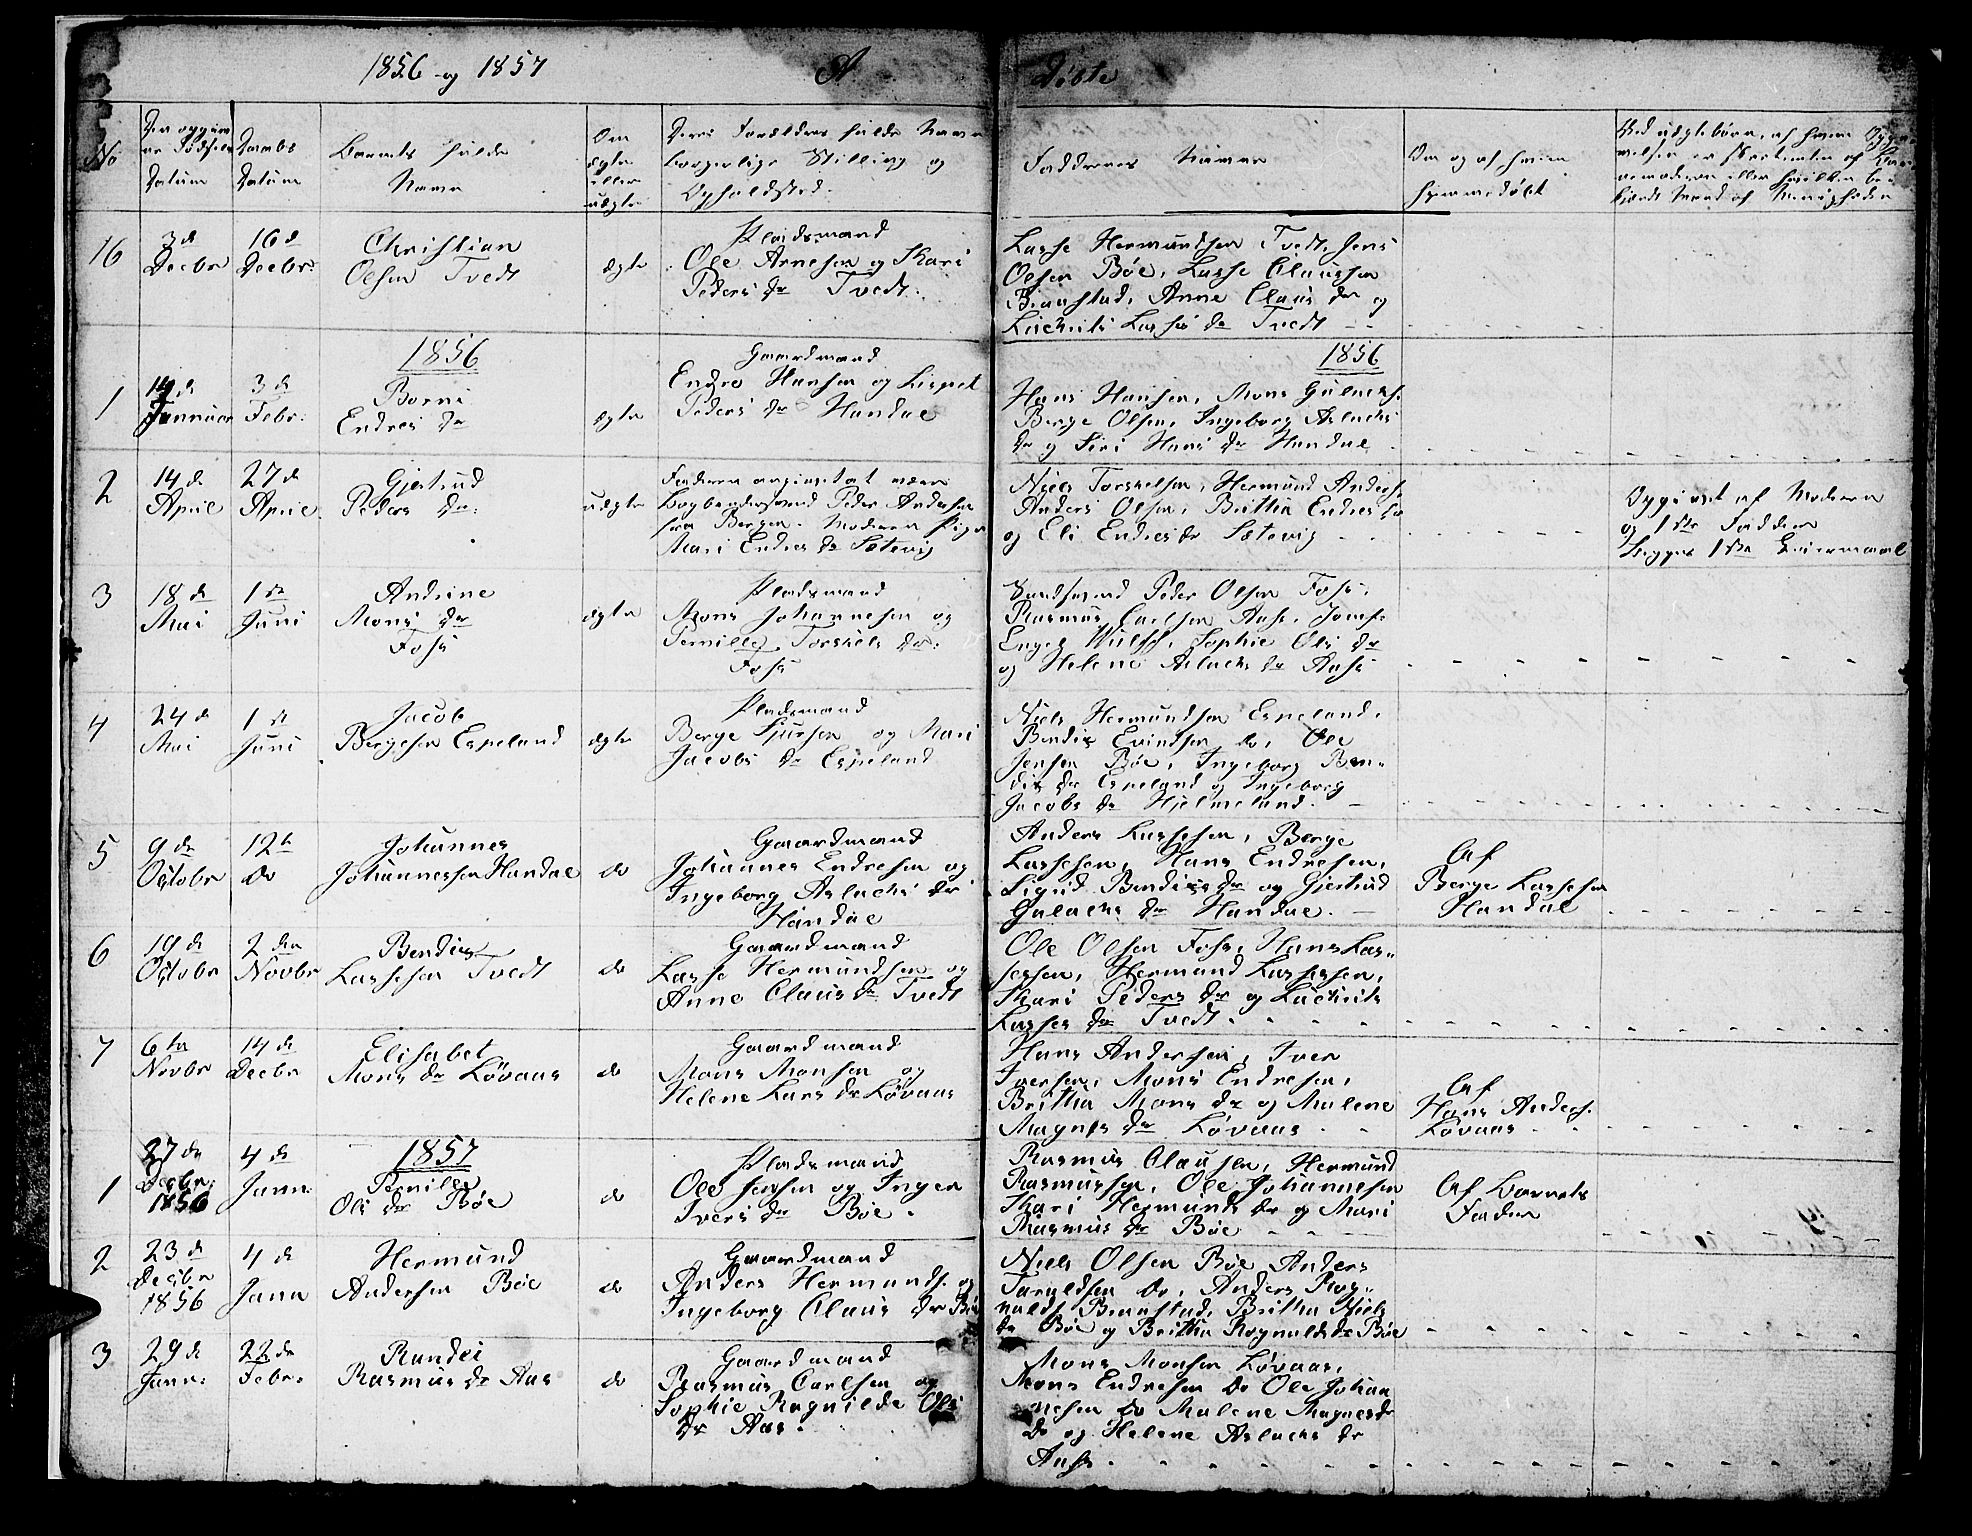 1856 og 1857
A
Døbte
No
Den opgivne Fødsels Datum
Daabs Datum
Barnets fulde Navn
Om ægte eller uægte
Deres Forældres fulde Navn
borgerlige Stilling og
Opholdsted.
Faddernes Navne
Om og af hvem
hjemmedøbt
16
3 d
Decbr
16 d
Decbr.
Christian
Olsen Tvedt
ægte
Pladsmand
Ole Arnesen og Kari
Peders dr Tvedt.
Lasse Hermundsen Tvedt, Jens
Olsen Bøe, Lasse Claussen
Anne Claus dr og
Lasses dr Tvedt
1856
1856
1
Januar
3 d
Febr.
Borni
Endres dr
ægte
Gaardmand
Endre Hansen og Lispet
Peders dr Handal
Hans Hansen, Mons
Berge Olsen, Ingeborg Aslachs
dr og Siri Hans dr Handal
2
14 d
April
27 d
April
Gjertrud
Peders dr.
uægte
Faderen angivet at være
Peder Andersen
fra Bergen. Moderen Pigen
Mari Endres dr Sætevig
Niels Torkelsen, Hermund Anders.
Anders Olsen, Britha Endres dr
og Eli Endres dr Sætevig
Opgivet af Moderen
og 1ste Fadder
Begges 1ste Leiermaal
3
18 d
Mai
1 ste
Juni
Andrine
Mons dr
Foss
ægte
Pladsmand
Mons Johannesen og
Pernille Torkels dr.
Foss
Peder Olsen Foss,
Rasmus Carlsen Aase, Jomf.
Engel Wulff, Sophie Ols dr
og Helene Aslachs dr Aase
4
24 d
Mai
1 ste
Juni
Jacob
Bergesen Espeland
ægte
Pladsmand
Berge Sjursen og Mari
Jacobs dr Espeland
Niels Hermundsen Espeland,
Bendix Evindsen do, Ole
Jensen Bøe, Ingeborg Ben-
dix dr Espeland og Ingeborg
Jacobs dr Hjelmeland.
5
9 de
Octobr
12 te
do
Johannes
Johannessen Handal
do
Gaardmand
Johannes Endresen og
Ingeborg Aslachs dr
Handal
Anders Lassesen, Berge
Lassesen, Hans Endresen,
Sigrid Bendixs dr og Gjertrud
dr Handal.
Af
Berge Lassesen
Handal
6
19 de
Octobr
2 den
Novbr
Bendix
Lassesen Tvedt
do
Gaardmand
Lasse Hermundsen og
Anne Claus dr Tvedt
Ole Olsen Foss, Hans Las-
sesen, Hermund Lassesen,
Kari Peders dr og
Lasses dr Tvedt.
7
6 te
Novbr
14 de
Decbr
Elisabet
Mons dr Løvaas
do
Gaardmand
Mons Monsen og
Helene Lars dr Løvaas
Hans Andersen, Iver
Iversen, Mons Endresen,
Britha Mons dr og Malene
Magnes dr Løvaas
Af
Hans Anders.
Løvaas
1857
1
27 de
Decbr.
1856
4 de
Janr.
Pernille
Ols dr Bøe
do
Pladsmand
Ole Jensen og Inger
Ivers dr Bøe.
Rasmus Clausen, Hermund
Rasmussen, Ole Johannesen
Kari Hermunds dr og Mari
Rasmus dr Bøe
Af Barnets
Fader
2
23 de
Decbr
1856
4 de
Janr
Hermund
Andersen Bøe
do
Gaardmand
Anders Hermunds. og
Ingeborg Claus dr Bøe
Niels Olsen Bøe Anders
do, Anders Rog-
Britha Niels
dr Bøe og Britha Rognalds dr Bøe
3
29 de
Janr.
22 de
Febr.
Randei
Rasmus dr Aas
do
Gaardmand
Rasmus Carlsen og
Sophie Ragnilde Ols
dr Aas.
Mons Monsen Løvaas,
Mons Endresen do Ole Johan
nesen do Malene Magnes dr
do og Helene Aslachs dr
Aase.